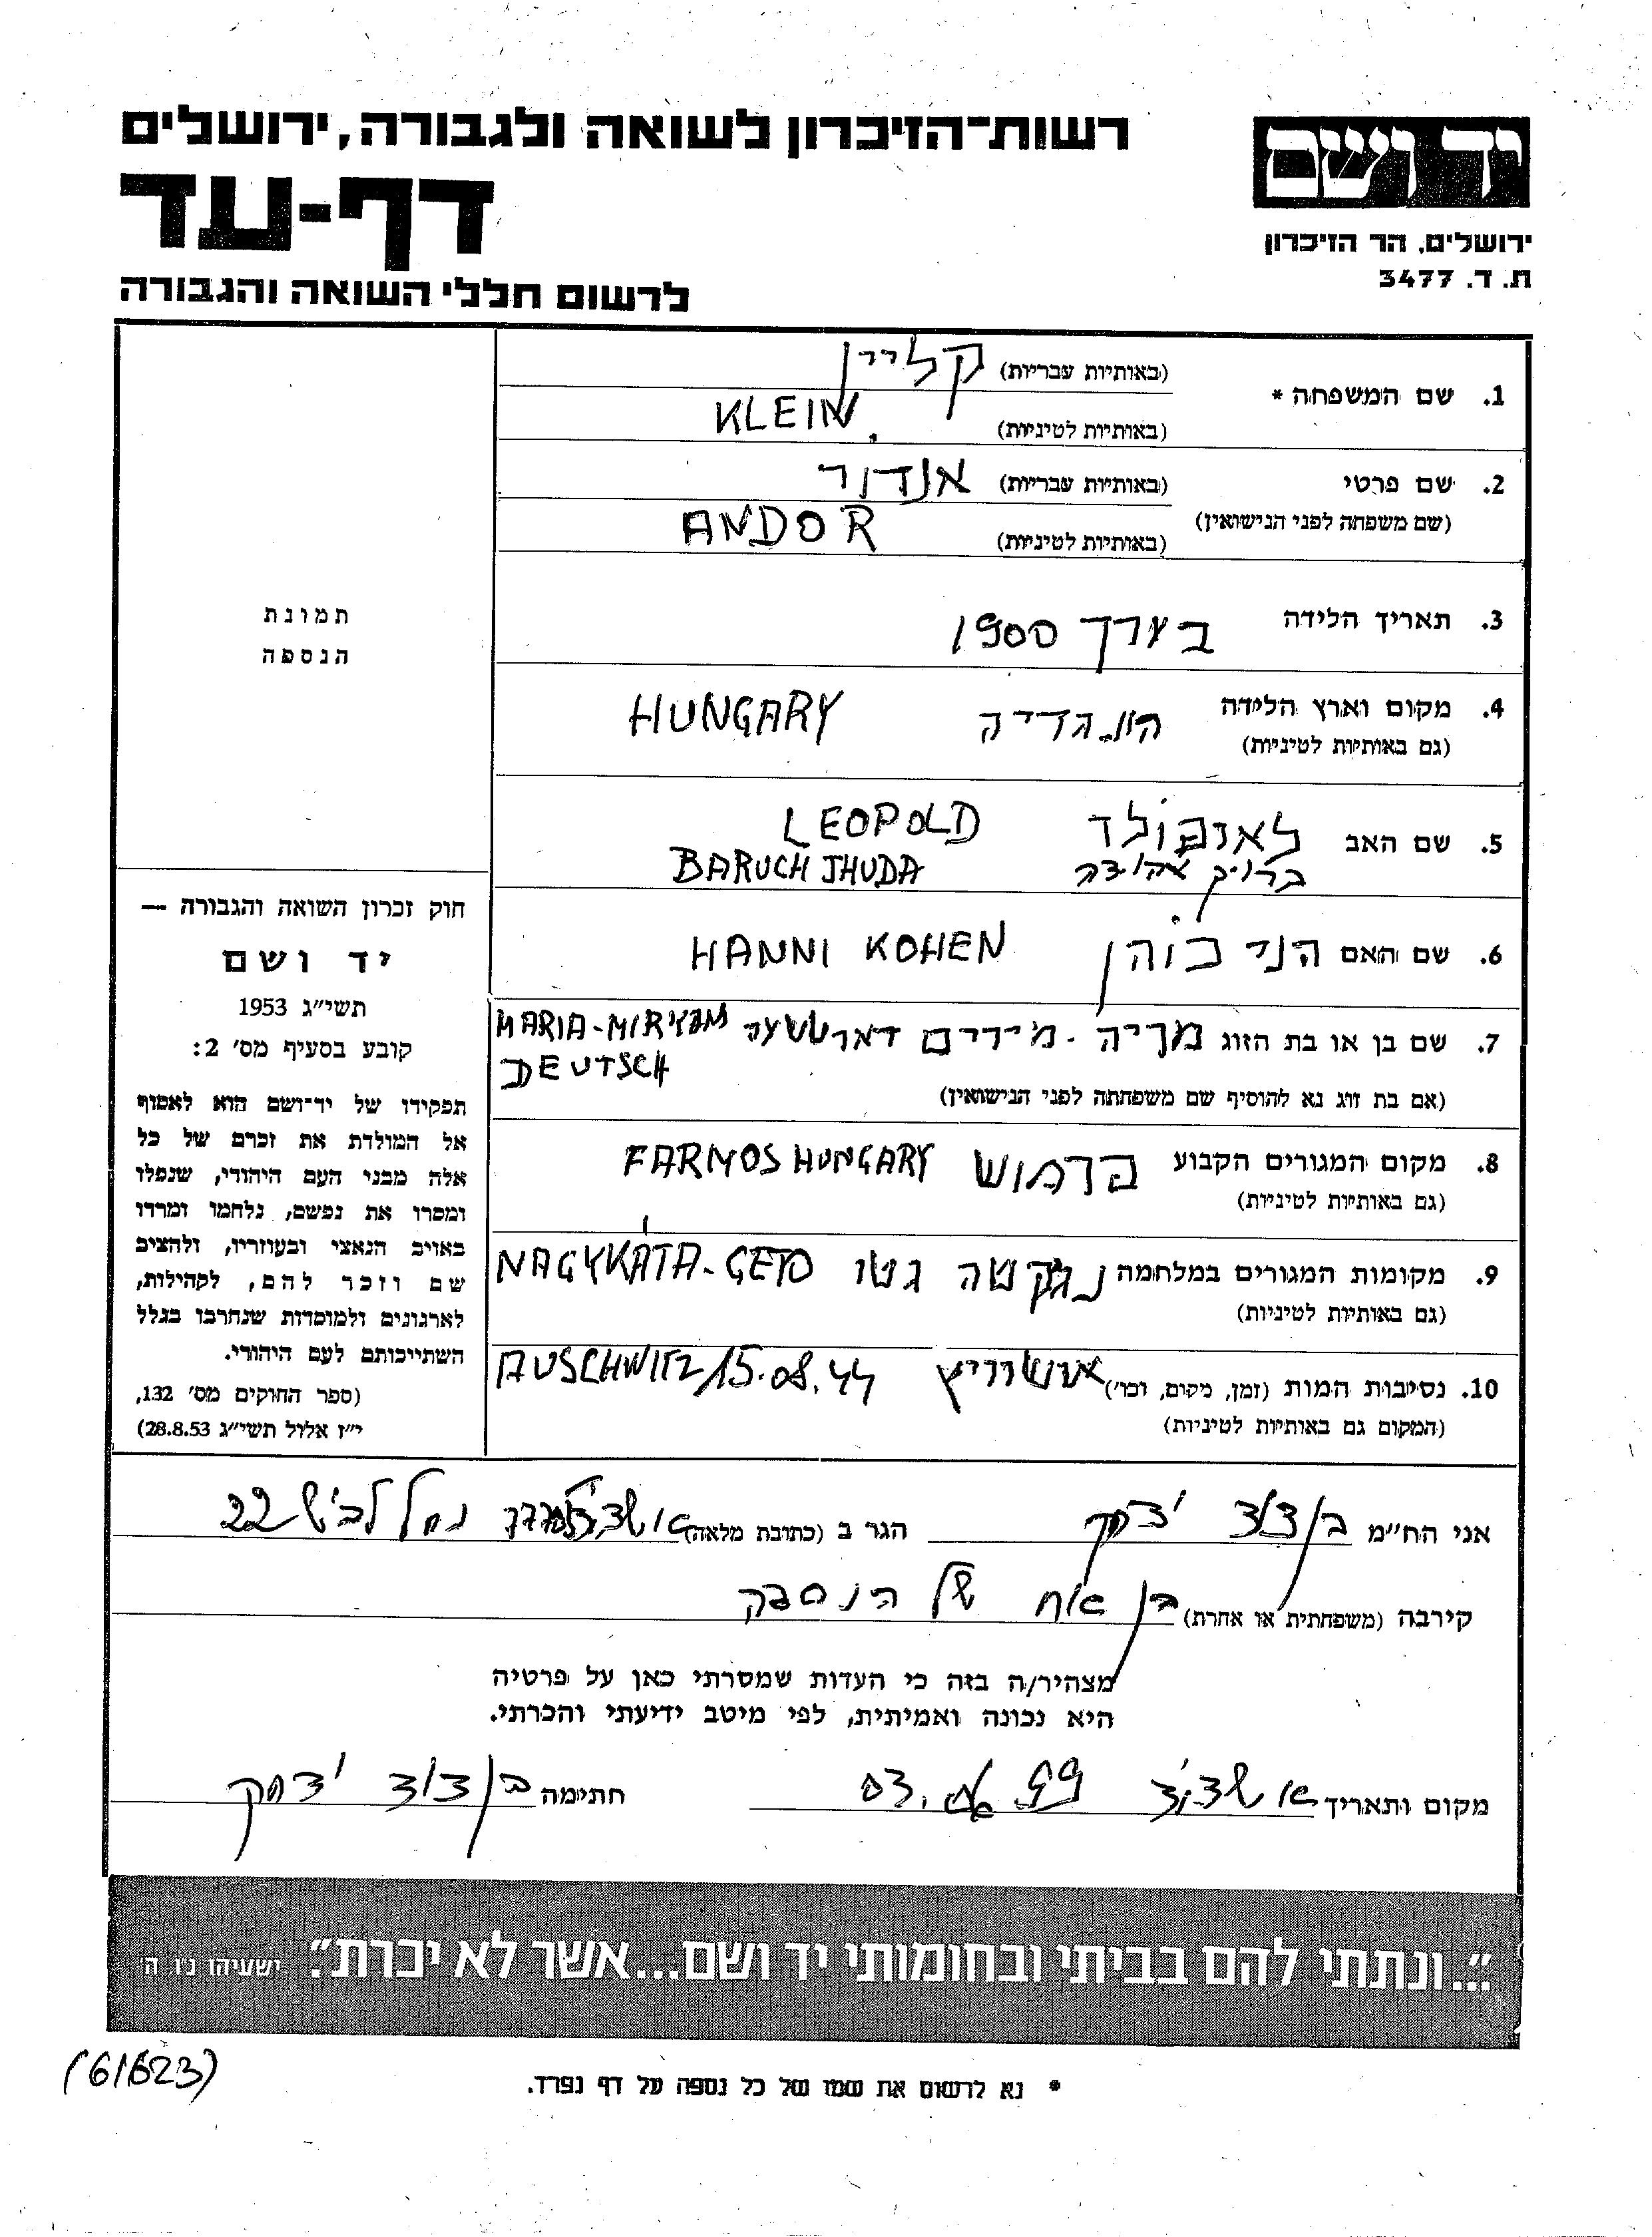 רשות־הזיכרון לשואה ולגבורה, ירושלים
יד ושם
דף-עד
ירושלים, הר הזיכרון
ת. ד. 3477
לרשום חללי השואה והגבורה
1. שם המשפחה * (באותיות עבריות) קליין
(באותיות לטיניות) KLEIN
2. שם פרטי (באותיות עבריות) אנדור
(שם משפחה לפני הנישואין) (באותיות לטיניות) ANDOR
תמונת
הנספה
3. תאריך הלידה בערך 1900
4. מקום וארץ הלידה הונגריה HUNGARY
(גם באותיות לטיניות)
5. שם האב לאופולד LEOPOLD
ברוך BARUCH JHUDA
6. שם האם הני כוהן HANNI KOHEN
7. שם בן או בת הזוג מריה - מירים MARIA-MIRYAM
DEUTSCH
(אם בת זוג נא להוסיף שם משפחתה לפני הנישואין)
8. מקום המגורים הקבוע פרמוש FARMOS HUNGARY
(גם באותיות לטיניות)
9. מקומות המגורים במלחמה נגקטה גטו NAGYKÁTA-GETO
(גם באותיות לטיניות)
10. נסיבות המות (זמן, מקום, וכו׳) אושוויץ AUSCHWITZ 15.08.44
(המקום גם באותיות לטיניות)
חוק זכרון השואה והגבורה —
יד ושם
תשי״ג 1953
קובע בסעיף מס׳ 2:
תפקידו של יד־ושם הוא לאסוף
אל המולדת את זכרם של כל
אלה מבני העם היהודי, שנפלו
ומסרו את נפשם, נלחמו ומרדו
באויב הנאצי ובעוזריו, ולהציב
שם וזכר להם, לקהילות,
לארגונים ולמוסדות שנחרבו בגלל
השתייכותם לעם היהודי.
(ספר החוקים מס׳ 132,
י״ז אלול תשי״ג 28.8.53)
אני הח״מ בן צדוק יצחק הגר ב (כתובת מלאה) נחל לכיש 22
קירבה (משפחתית או אחרת) בן אח של הנספה
מצהיר/ה בזה כי העדות שמסרתי כאן על פרטיה
היא נכונה ואמיתית, לפי מיטב ידיעתי והכרתי.
מקום ותאריך אשדוד 03. 99 חתימה יצחק
״...ונתתי להם בביתי ובחומותי יד ושם...אשר לא יכרת״. ישעיהו נ״ו ה
(61623)
* נא לרשום את שמו של כל נספה על דף נפרד.